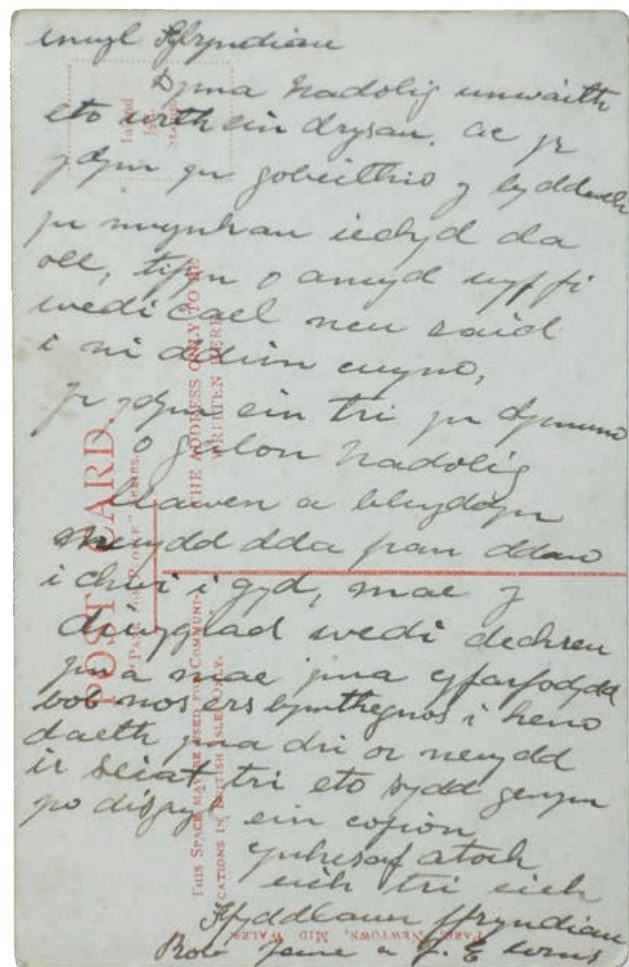 Ffryndiau
Dyma Nadolig unwaith
eto wrth ein drysau. ac yr
ydym yn gobeithio y byddwch
yn mwynhau iechyd da
oll, tipyn o anwyd wyf fi
wedi cael neu raid
i ni ddim cwyno,
yr ydym ein tri yn dymuno
o galon Nadolig
llawen a blwyddyn
newydd dda pan ddaw
i chwi i gyd, mae y
diwygiad wedi dechreu
yma mae yma gyfarfodydd
bob nos ers bymthegnos i heno
daeth yma dri or newydd
ir seiat tri eto sydd genym
ein cofion
gynhesaf atoch
eich tri eich
Ffyddlawn ffryndiau
Bob Jane a J. E
Inland
Stamp
POST CARD.
SERIES.
THE ADDRESS ONLY TO BE
WRITTEN HERE
THIS SPACE MAY BE USED FOR COMMUNI-
CATIONS IN BRITISH ISLES ONLY.
PARK, NEWTOWN, MID WALES.